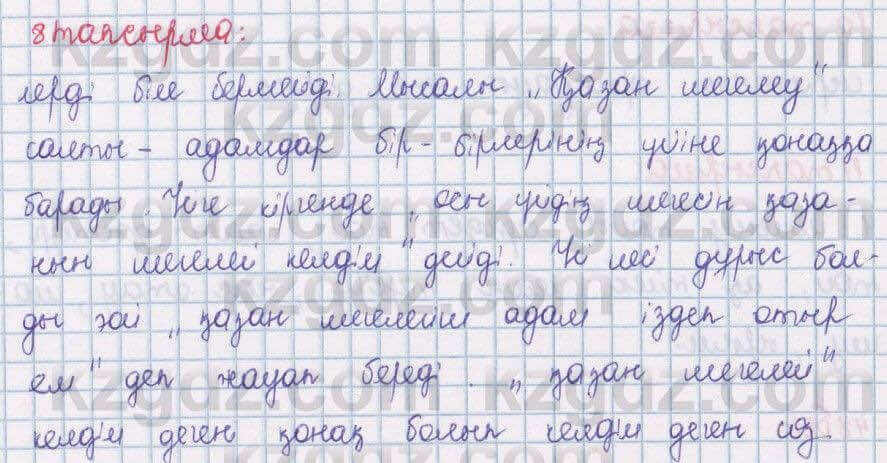 8 тапсырма:
лерді біле бермейді. Мысалы „Қазан шегелеу"
салты - адамдар бір - бірлерінің үйіне қонаққа
барады. Үйге кіргенде „осы үйдің шегесін қаза-
нын шегелей келдім" дейді. Үй иесі дұрыс бол-
ды ғой „қазан шегелейтін адам іздеп отыр
ем" деп жауап береді. „қазан шегелей"
келдім деген қонақ болып келдім деген сөз.
kzgdz.com